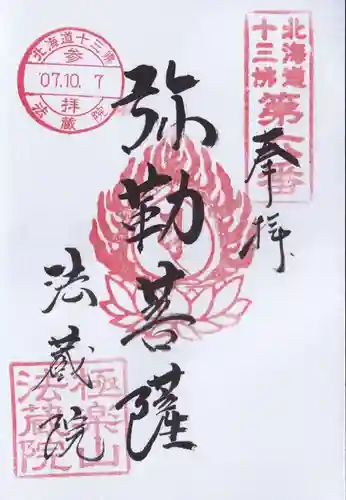 北海道
十三佛
第六番
奉拝
弥勒菩薩
法蔵院
北海道十三佛
参
'07.10.7
拝
法蔵院
極楽山
法蔵院